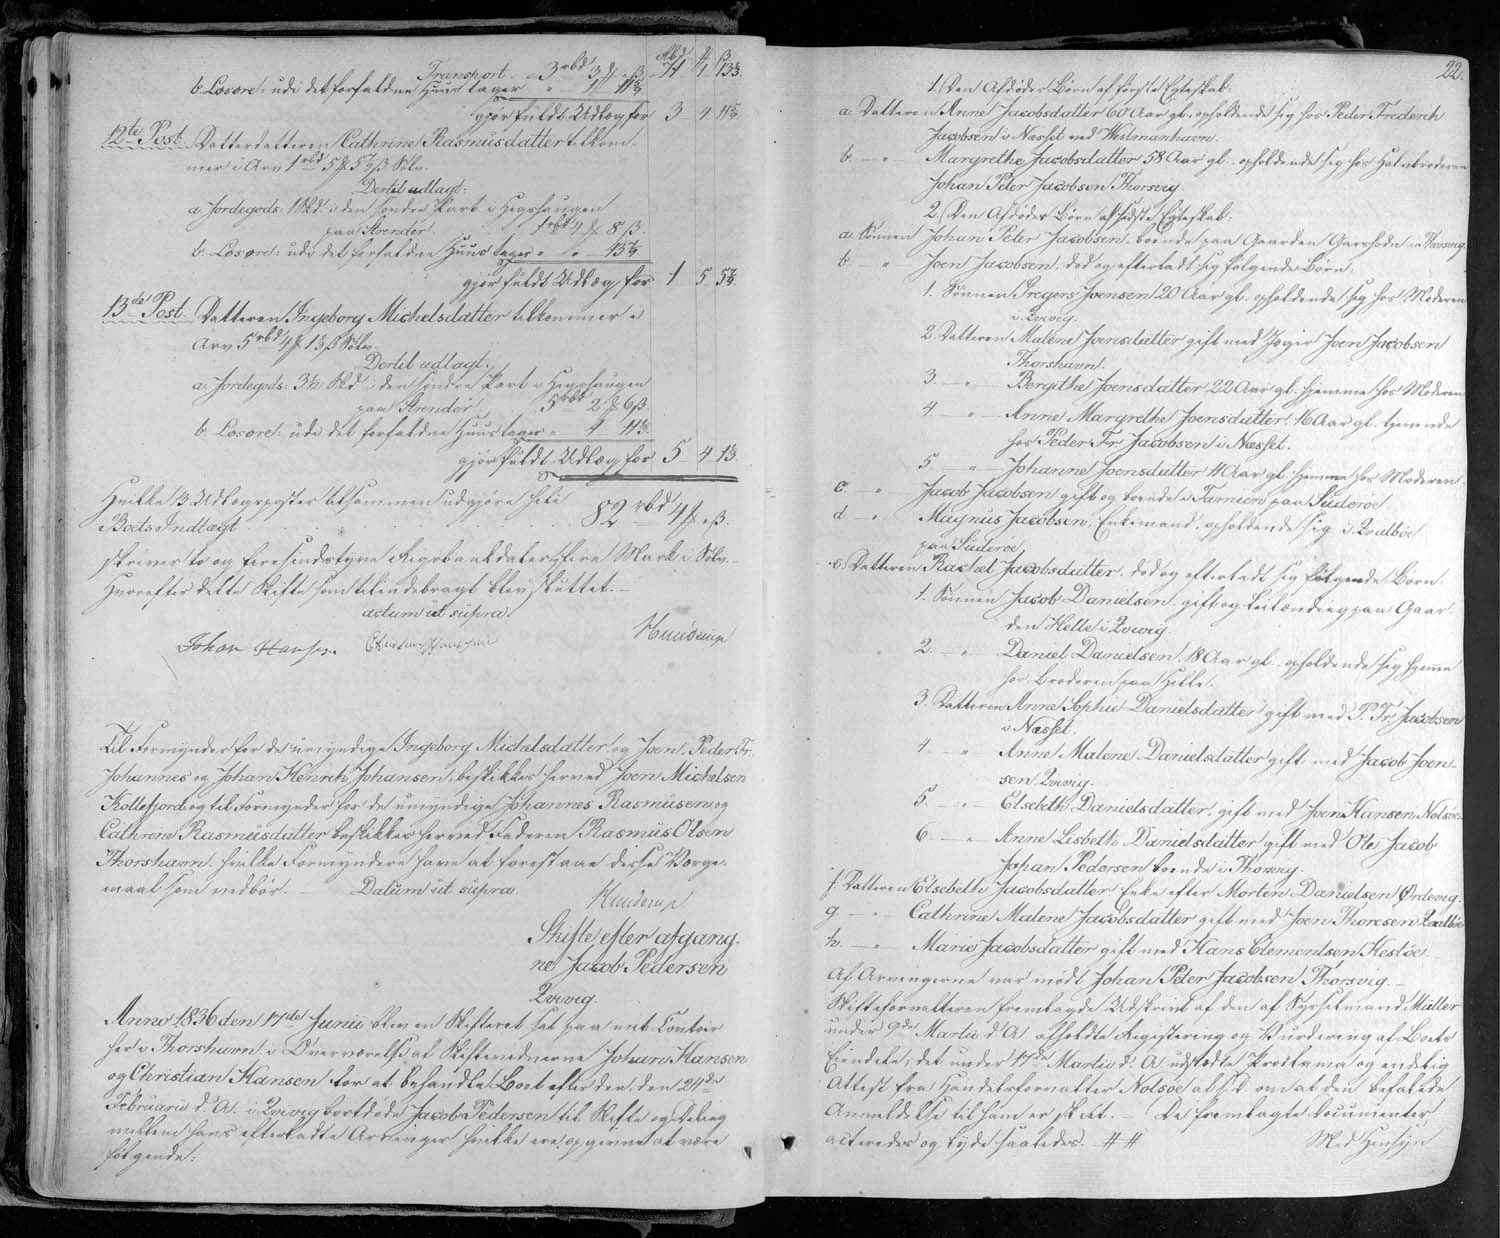 Transport. „ 3 rbd 3 ℔ „ ß
b. Løsøre: udi det forfaldne Huus tages „ 4 11⅘
gjør fuldt Udlæg for 3 4 11⅘
12te Post. Datterdatteren Cathrine Rasmusdatter tilkom-
mer i Arv 1 rbd 5 ℔ 5½ ß Sølv.
Dertil udlagt:
a. Jordegods: 1 Skd i den søndre Part i Hegshaugen
paa Strendør. 1 rbd 4 ℔ 8 ß.
b. Løsøre: udi det forfaldne Huus tages
gjør fuldt Udlæg for 1 5 5½
13de Post. Datteren Ingeborg Michelsdatter tilkommer i
Arv 5 rbd 4 ℔ 13 ß Sølv.
Dertil udlagt.
a. Jordegods: 3½ Skd i den søndre Part i Hegshaugen
paa Strendør. 5 rbd 2 ℔ 6 ß.
b. Løsøre: udi det forfaldne Huus tages
gjør fuldt Udlæg for 5 4 13
Hvilke 13 Udlægsposter tilsammen udgjøre
Boets Indtægt 82 rbd 4 ℔ „ ß.
skriver to og Fiersindstyve Rigsbankdaler, fire Mark i Sølv.
Hvorefter dette Skifte som tilendebragt blev sluttet.
actum ut supra.
Johan Hansen. Christian Hansen Hunderup
Til Formynder for de umyndige Ingeborg Michelsdatter og Joen, Peder Fr.
Johannes og Johan Henrik Johansen, beskikkes herved Joen Michelsen
Kollefjord og til Formynder for de umyndige Johannes Rasmusen og
Cathrine Rasmusdatter beskikkes herved Faderen Rasmus Olsen
Thorshavn. hvilke Formyndere have at forestaae disse Værge-
maal som vedbør. Datum ut supra.
Hunderup
Skifte efter afgang-
ne Jacob Pedersen
Qvivig.
Anno 1836 den 17de Junii blev en Skifteret sat paa mit Contoir
her i Thorshavn i Overværelse af Skiftevidnerne Johan Hansen
og Christian Hansen for at behandle Boet efter den, den 24de
Februarii d. A. i Qvivig bortdøde Jacob Pedersen til Skifte og Deling
mellem hans efterladte Arvinger, hvilke ere opgivne at være
følgende:
22.
1.) Den Afdødes Børn af første Egteskab:
a. Datteren Anne Jacobsdatter 60 Aar gl. opholdende sig hos Peder Frederik
Jacobsen i Næsset ved Westmanhavn.
b. — „ — Margrethe Jacobsdatter 58 Aar gl. opholdende sig hos Halvbroderen
Johan Peter Jacobsen Thorsvig.
2.) Den Afdødes Børn af sidste Egteskab:
a. Sønnen Johan Peter Jacobsen, boende paa Gaarden Garshodn i Thorsvig.
b. — „ Joen Jacobsen, død og efterladt sig følgende Børn:
1. Sønnen Gregers Joensen 20 Aar gl. opholdende sig hos Moderen
i Qvivig.
2. Datteren Malene Joensdatter gift med Joen Jacobsen
Thorshavn.
3. — „ — Bergithe Joensdatter 22 Aar gl. hjemme hos Moderen
4. — „ — Anne Margrethe Joensdatter, 16 Aar gl. tjenende
hos Peder Fr. Jacobsen i Næsset.
5. — „ — Johanne Joensdatter 11 Aar gl. hjemme hos Moderen.
c. „ Jacob Jacobsen gift og boende i Famien paa Suderøe
d. — „ Magnus Jacobsen, Enkemand, opholdende sig i Qvalbøe
paa Suderøe
e. Datteren Rachel Jacobsdatter, død og efterladt sig følgende Børn:
1. Sønnen Jacob Danielsen, gift og Leilænding paa Gaar-
den Helle i Qvivig
2. — „ — Daniel Danielsen, 18 Aar gl. opholdende sig hjemme
hos Broderen paa Helle.
3. Datteren Anne Sophie Danielsdatter gift med P. Fr. Jacobsen
i Næsset.
4. — „ Anne Malene Danielsdatter gift med Jacob Joen-
sen Qvivig.
5. — „ — Elsebeth Danielsdatter, gift med Joen Hansen Nolsøe.
6. — „ — Anne Lisbeth Danielsdatter gift med Ole Jacob
Johan Pedersen boende i Thorsvig.
f. Datteren Elsebeth Jacobsdatter Enke efter Morten Danielsen Ørdevig.
g. — „ — Cathrine Malene Jacobsdatter gift med Joen Thoresen Qvalbøe
h. — „ Marie Jacobsdatter gift med Hans Clementsen Hestøe.
Af Arvingerne var mødt Johan Peter Jacobsen Thorsvig. —
Skifteforvalteren fremlagde Udskrivt af den af Sysselmand Müller
under 9de Martii d. A. afholdte Registering og Vurdering af Boets
Eiendele; det under 17de Martii d. A. udstædte Proclama og endelig
Attest fra Handelsforvalter Nolsøe om at den befalede
Anmeldelse til ham er skeet. De fremlagte Documenter
acteredes og lyde saaledes: ## Med Hensyn